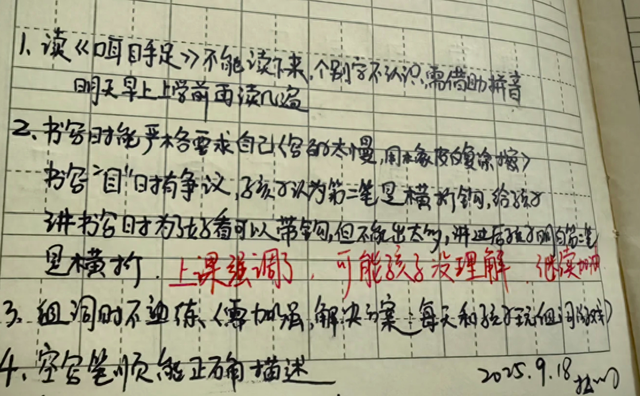 1、读《口耳目手足》不能读下来,个别字不认识,需借助拼音
明天早上上学前再读几遍
2、书写时能严格要求自己(写的太慢,用橡皮反复涂擦)
书写"目"时有争议,孩子认为第二笔是横折钩,给孩子
讲书写时为了好看可以带钩,但不能出太多,讲述后孩子明白第二笔
是横折. 上课强调了,可能孩子没理解 继续加强
3、组词时不熟练,(需加强,解决方案:每天和孩子玩组词游戏)
4、空写笔顺能正确描述
2025.9.18